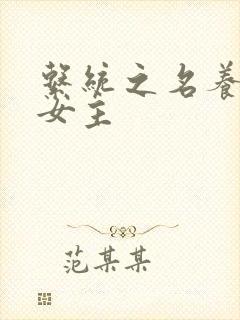 繫統之名養
女主
范某某